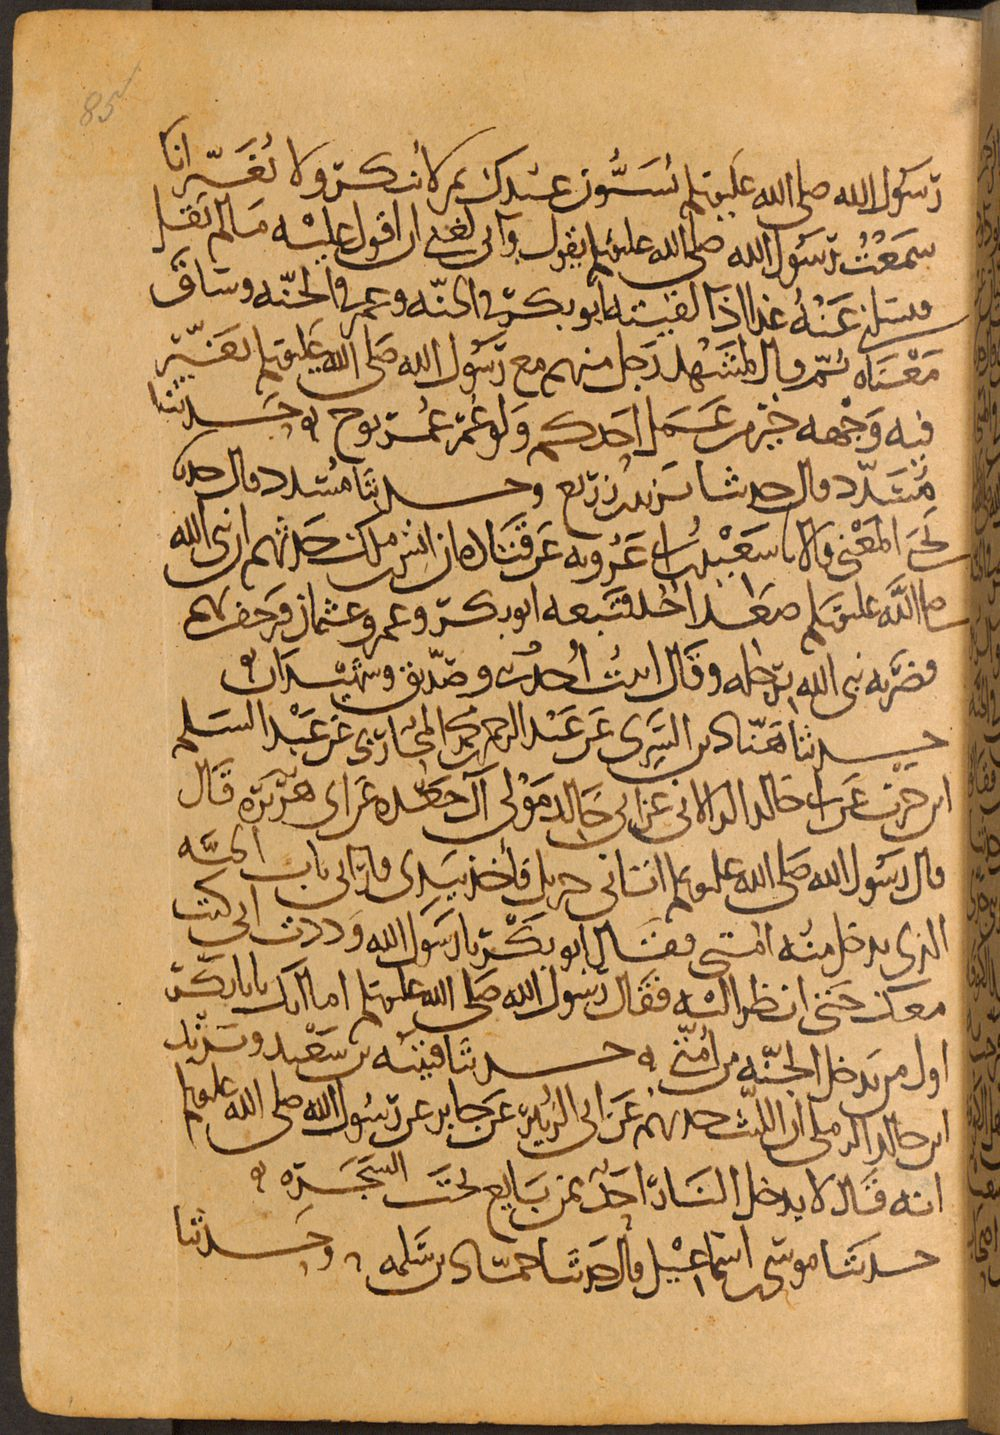 85
رسول الله صلى الله عليه وسلم يُسَبُّون عندك ثم لا تنكر ولا تُغَيِّر انا
سمعتُ رسول الله صلى الله عليه وسلم يقول واني لغني ان اقول عليه مالم يقل
فيسلني عَنْهُ غدا اذا لقيته ابو بكر في الجنه وعمر في الجنه وساق
مَعْناه ثم قال لمشهد رجل منهم مع رسول الله صلى الله عليه وسلم يغبر
فيه وجهه خير من عمل احدكم ولو عُمّر عمر نوح ه حدثنا
مُسَدّد قال حدثنا يزيد بن زريع وحدثنا مُسدد قال حدثنا
يحيى المَعْنى قالا نا سعيد بن ابي عروبه عن قتاده ان انس بن ملك حدثهم ان نبي الله
صلى الله عليه وسلم صعد احدا فتبعه ابو بكر وعمر وعثمان فرجف بهم
فضربه نبي الله برجله وقال اثبت أُحد نبي وصدّيق وشهيدان ه
حدثنا هنّاد بن السَّرِي عن عبد الرحمن بن محمد المحاربي عن عَبْد السلم
ابن حرب عن ابي خالد الدالاني عن ابي خالد مَوْلى آل جعده عن ابي هريره قال
قال رسول الله صلى الله عليه وسلم اتاني جبريل فأخذ بيدي فاراني باب الجنّه
الذي يدخل منه امتي فقال ابو بكر يا رسول الله وددت اني كنت
معك حتى انظر اليه فقال رسول الله صلى الله عليه وسلم اما انك يا با بكر
اول من يدخل الجنّه من أمتي ه حدثنا قتيبه بن سَعْيد ويزيد
ابن خالد الرملي ان الليث حدثهم عن ابي الزُبير عن جابر عن رسول الله صلى الله عليه وسلم
انه قال لا يدخل النار احد ممن بايع تحت الشجره ه
حدثنا موسى بن اسماعيل قال حدثنا حمّاد بن سلمه ه وحدثنا